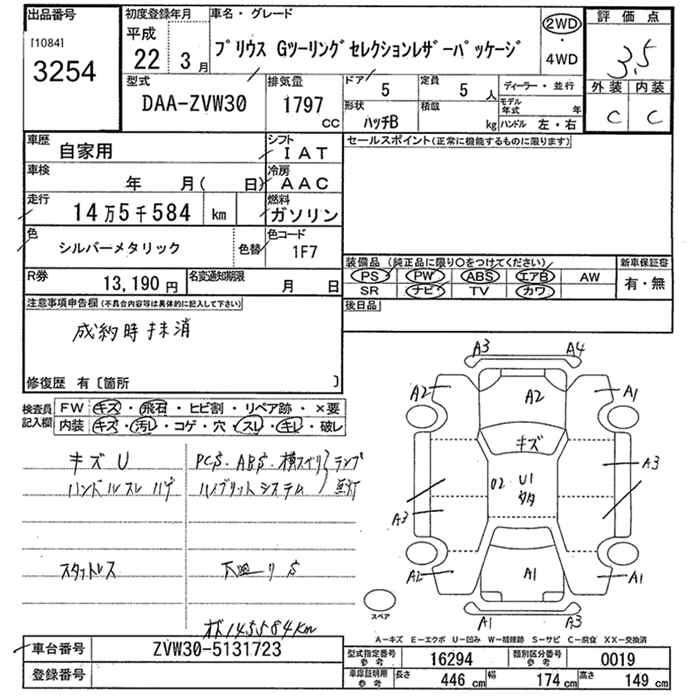 出品番号
[1084]
3254
初度登録年月
平成
22 3月
車名・グレード
プリウス Gツーリングセレクションレザーパッケージ
2WD
・
4WD
評価点
3.5
外装 内装
C C
型式
DAA-ZVW30
排気量
1797
CC
ドア
5
定員
5 人
ディーラー・並行
形状
ハッチB
積載
kg
モデル年式 年
ハンドル 左・右
車歴
自家用
シフト
IAT
車検
年 月( 日)
冷房
AAC
走行
14万5千584 km
燃料
ガソリン
色
シルバーメタリック
色替
色コード
1F7
R券
13,190円
名変通知期限
月 日
セールスポイント(正常に機能するものに限ります)
装備品(純正品に限り○をつけてください)
PS PW ABS エアB AW
SR ナビ TV カワ
新車保証書
有・無
後日品
注意事項申告欄(不具合内容等は具体的に記入して下さい)
成約時抹消
修復歴 有〔箇所 〕
検査員
記入欄
FW キズ・飛石・ヒビ割・リペア跡・×要
内装 キズ・汚れ・コゲ・穴・スレ・キレ・破レ
キズU
ハンドルスレ ハゲ
スタットレス
PCS. ABS. 横スベリ ランプ
ハイブリットシステム
下回リS
オド145584km
A3 A4
A2 A2 A1
キズ
A3
02 U1
A3
A2 A1 A1
A1 A3
スペア
A−キズ E−エクボ U−凹み W−補修跡 S−サビ C−腐食 XX−交換済
車台番号
ZVW30-5131723
登録番号
型式指定番号
参考
16294
類別区分番号
参考
0019
車庫証明用
参考
長さ 446 cm 幅 174 cm 高さ 149 cm